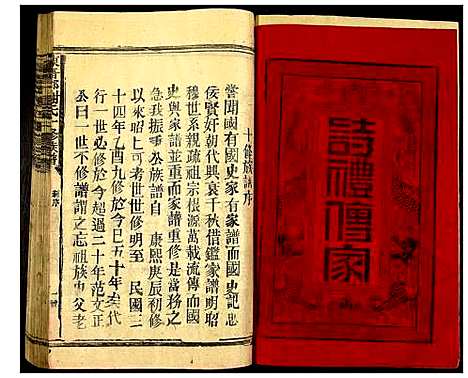 詩禮傳家
十修族譜序
嘗聞國有國史家有家譜而國史記忠
佞賢奸朝代興衰千秋借鑑家譜明昭
穆世系親疏祖宗根源萬載流傳而國
史與家譜並重而家譜重修是當務之
急我振 公族譜自 康熙庚辰初修
以來昭匕可考世世修明至 民國三
十四年乙酉九修於今已五十年矣代
行一世必修於今超過二十年范文正
公曰一世不修譜謂之忘祖族中父老